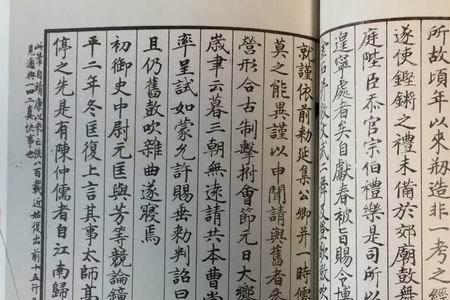 所故頃年以來刱造非一考之經
遂使鏗鏘之禮未備於郊廟鼓舞
庭陛臣忝官宗伯禮樂是司所以
遑寧處者矣自獻春被旨賜令博
就謹依前勑延集公卿并一時儒
莫之能異謹以申聞請與舊者
營形合古制擊拊會節元日大饗
歲聿云暮三朝無遠請共本曹尚
率呈試如蒙允許賜垂勑判詔曰
且仍舊鼓吹雜曲遂寢焉
初御史中尉元匡與芳等競論鐘
平二年冬匡復上言其事太師高
停之先是有陳仲儒者自江南歸
此葉自靖康以來已佚八百載近始復出前十五行
通典一二其快事也